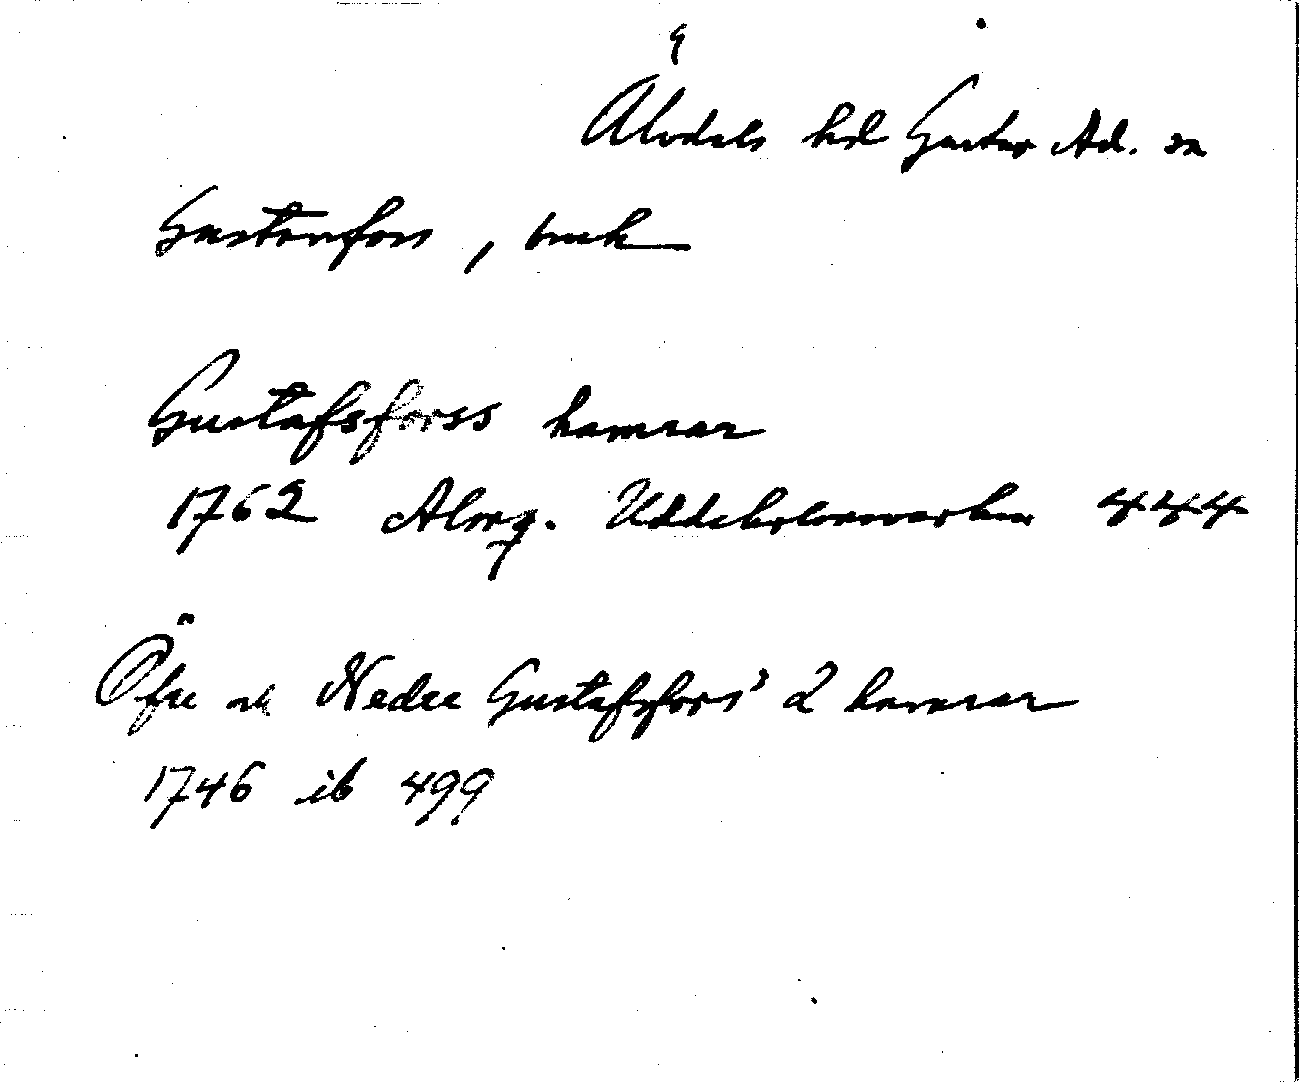 Älvdals hd Gustav Ad. sn
Gustavsfors, bruk
Gustafsforss hamrar
1762 Almq. Uddeholmsverken 444
Öfre och Nedre Gustafsfors' 2 hamrar
1746 ib 499